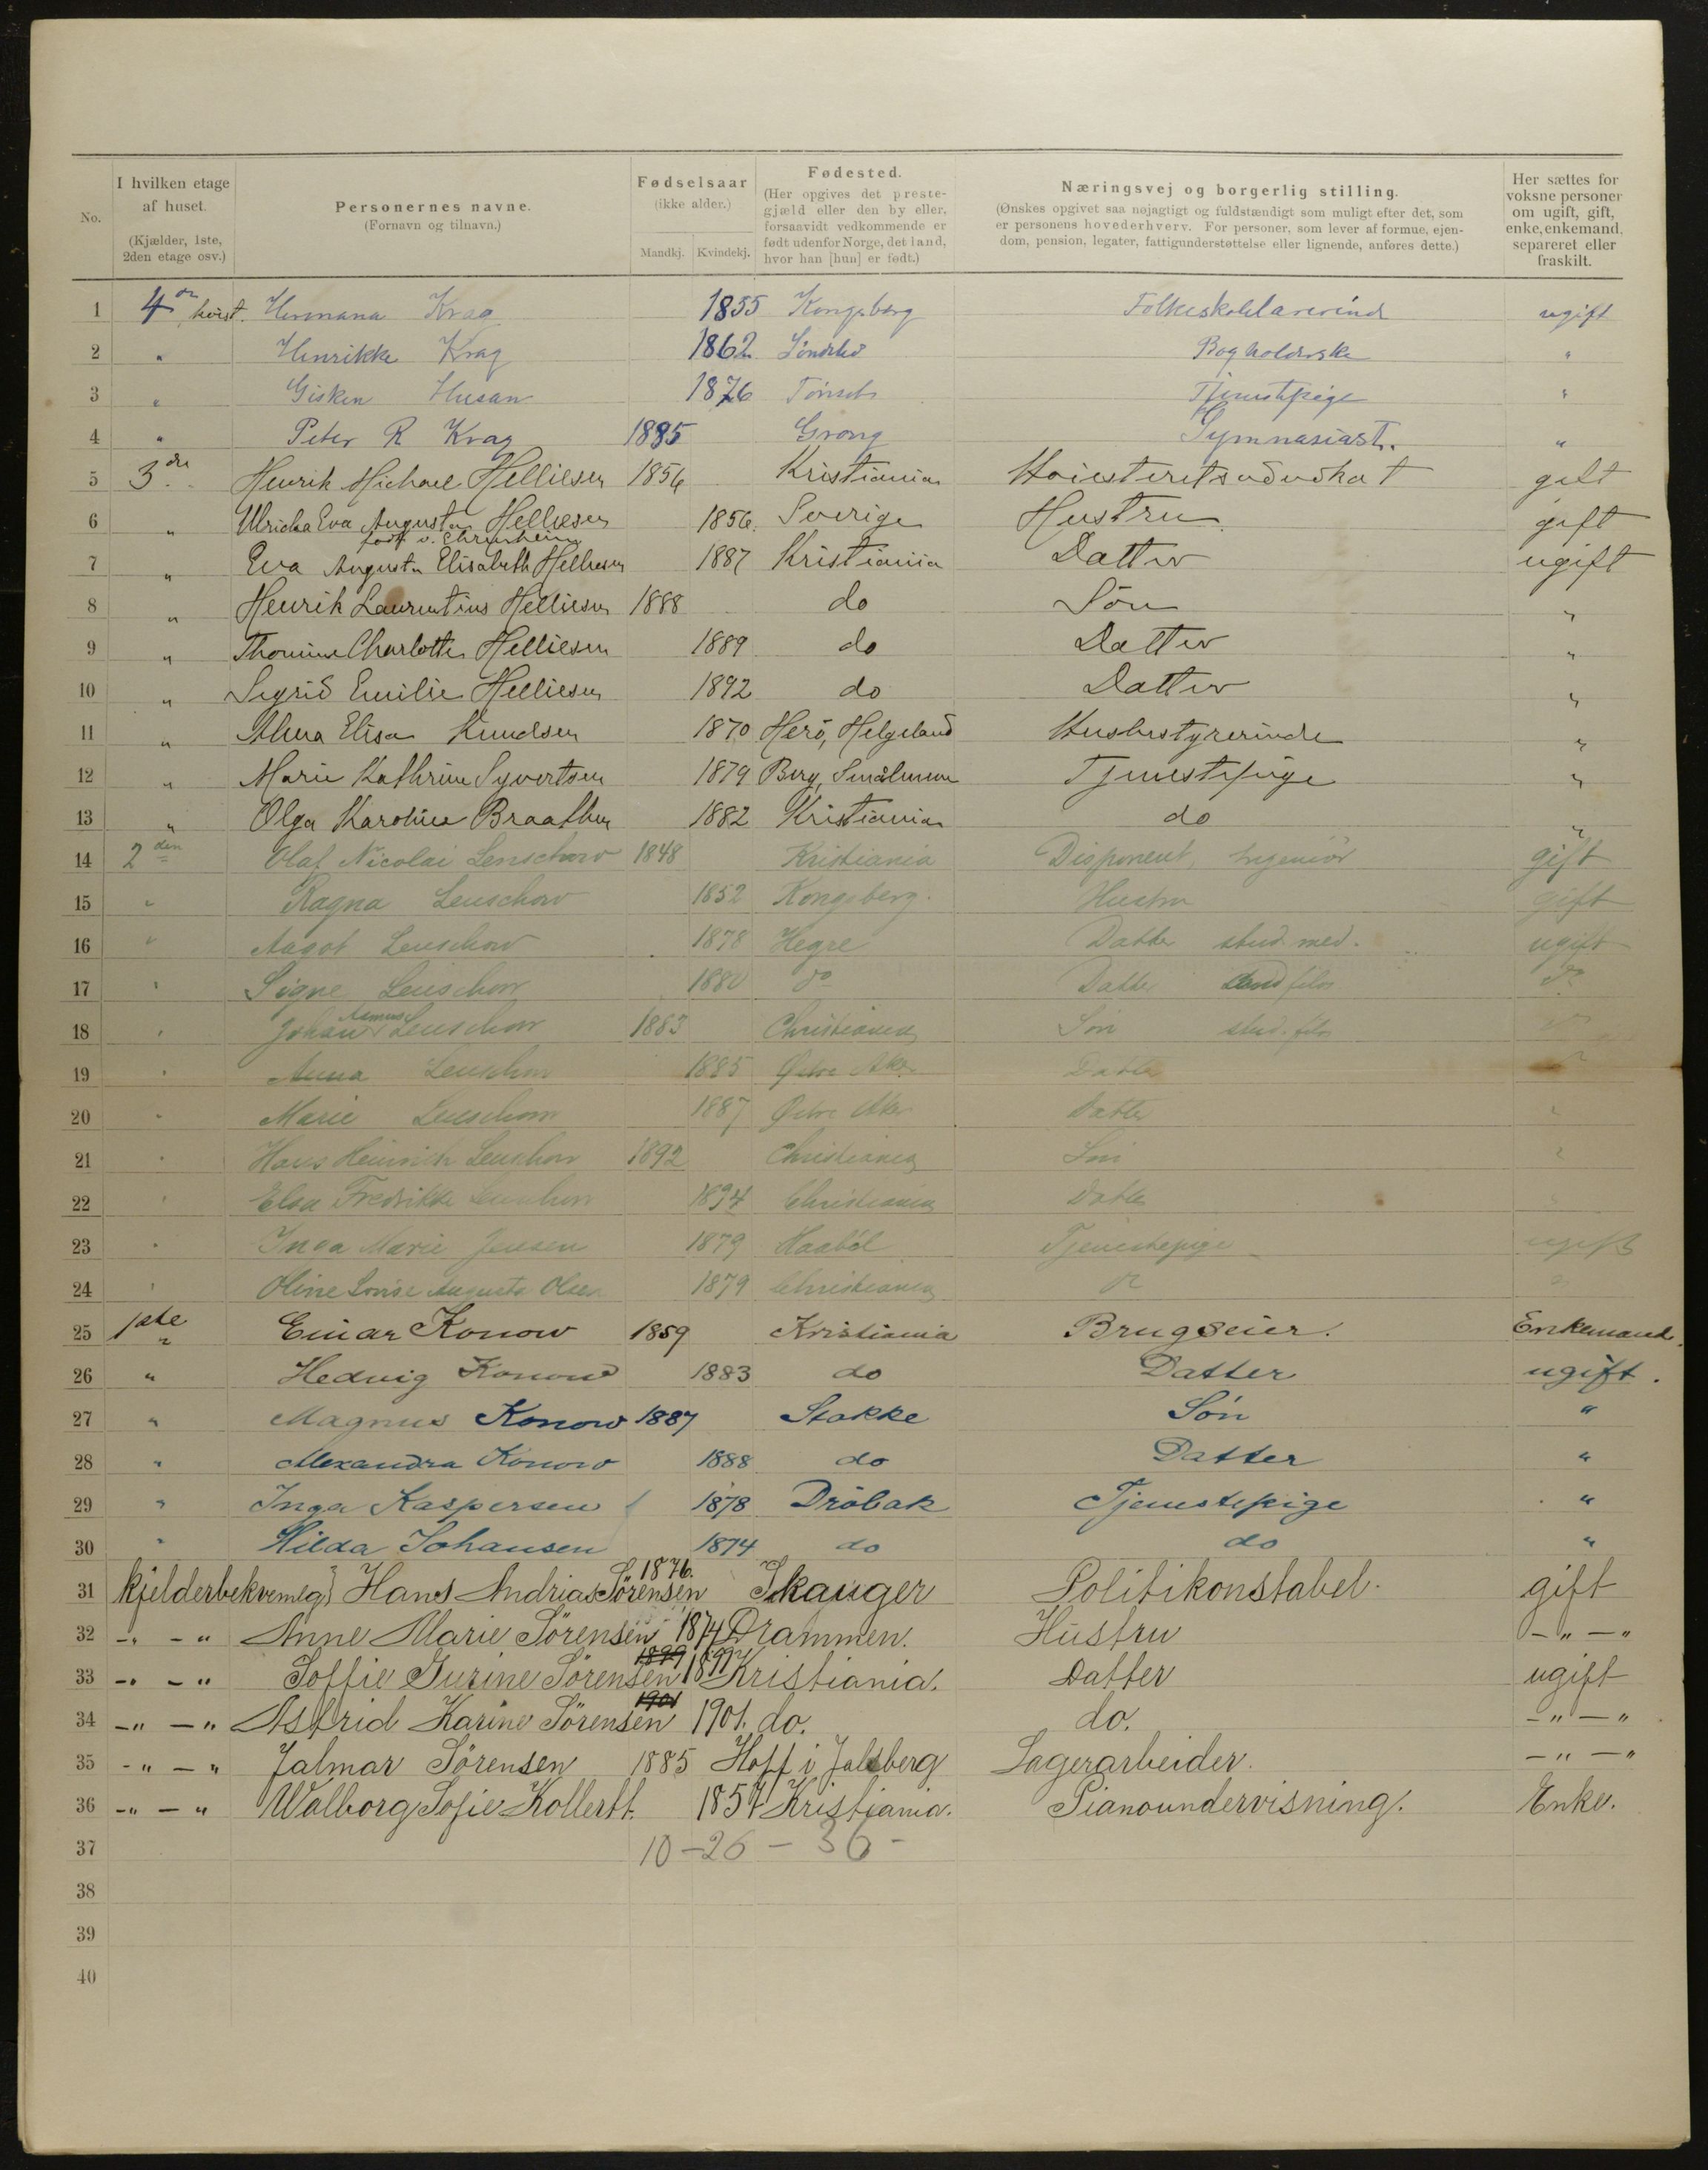 No.
I hvilken etage af huset. (Kjælder, 1ste, 2den etage osv.)
Personernes navne. (Fornavn og tilnavn.)
Fødselsaar (ikke alder.) Mandkj. Kvindekj.
Fødested. (Her opgives det prestegjæld eller den by eller, forsaavidt vedkommende er født udenfor Norge, det land, hvor han [hun] er født.)
Næringsvej og borgerlig stilling. (Ønskes opgivet saa nøjagtigt og fuldstændigt som muligt efter det, som er personens hovederhverv. For personer, som lever af formue, ejendom, pension, legater, fattigunderstøttelse eller lignende, anføres dette.)
Her sættes for voksne personer om ugift, gift, enke, enkemand, separeret eller fraskilt.
1 4de kvist. Hermana Krag 1855 Kongsberg Folkeskolelærerinde ugift
2 " Henrikke Krag 1862 Bogholderske "
3 " Gisken Husan 1876 Tönset Tjenestepige "
4 " Peter R Krag 1885 Grong Gymnasiast. "
5 3die Henrik Michael Helliesen 1856 Kristiania Høiesteretsadvokat gift
6 " Ulricha Eva Augusta Helliesen 1856. Sverige Hustru gift
født v.
7 " Eva Augusta Elisabeth Helliesen 1887 Kristiania Datter ugift
8 " Henrik Laurentius Helliesen 1888 do Sön "
9 " Thomine Charlotte Helliesen 1889 do Datter "
10 " Sigrid Emilie Helliesen 1892 do Datter "
11 " Alma Elisa Knudsen 1870 Herö, Helgeland Husbestyrerinde "
12 " Marie Kathrine Syvertsen 1879 Berg, Smålenene Tjenestepige "
13 " Olga Karoline Braathen 1882 Kristiania do "
14 2den Olaf Nicolai Lenschow 1848 Kristiania Disponent, Ingeniör gift
15 " Ragna Lenschow 1852 Kongsberg. Hustru gift
16 " Aagot Lenschow 1878 Hegre Datter stud. med. ugift
17 " Signe Lenschow 1880 do Datter filos do
18 " Johan Lenschow 1883 Christiania Sön stud. filos do
19 " Anna Lenschow 1885 Östre Aker Datter "
20 " Marie Lenschow 1887 Östre Aker Datter "
21 " Hans Heinrich Lenschow 1892 Christiania Sön "
22 " Elsa Fredrikke Lenschow 1894 Christiania Datter "
23 " Inga Marie Jensen 1879 Haaböl Tjenestepige ugift
24 " Oline Lovise Augusta Olsen 1879 Christiania do "
25 1ste " Einar Konow 1859 Kristiania Brugseier. Enkemand.
26 " Hedvig Konow 1883 do Datter ugift.
27 " Magnus Konow 1887 Stokke Sön "
28 " Alexandra Konow 1888 do Datter "
29 " Inga Kaspersen 1878 Dröbak Tjenestepige "
30 " Hilda Johansen 1874 do do "
31 kjelderbekvemlg. Hans Andrias Sörensen 1876. Skauger Politikonstabel. gift
32 -"-" Anne Marie Sörensen 1874 Drammen. Hustru -"-"
33 -"-" Soffie Gurine Sörensen 1899 1899 Kristiania. Datter ugift
34 -"-" Astrid Karine Sörensen 1901 1901. do. do. -"-"
35 -"-" Jalmar Sörensen 1885 Hoff i Jalsberg Lagerarbeider. -"-"
36 -"-" Walborg Sofie Kollertt. 1857 Kristiania. Pianoundervisning. Enke.
37 10-26-36-
38
39
40